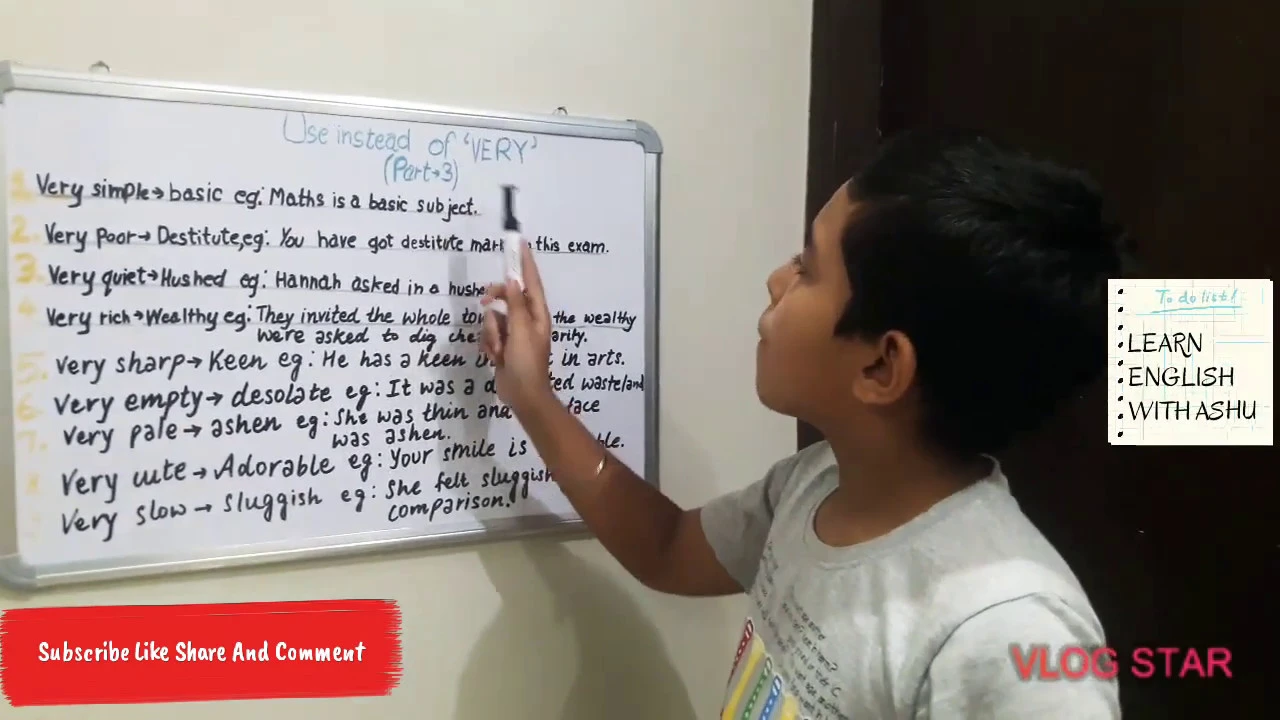 Use instead of 'VERY'
(Part→3)
1. Very simple→basic eg: Maths is a basic subject.
2. Very poor→Destitute,eg: You have got destitute this exam.
3. Very quiet→Hushed eg: Hannah asked in a
4 Very rich→Wealthy eg: They invited the whole the wealthy
were asked to dig
5. very sharp→Keen eg: He has a keen in arts.
6. very empty→desolate eg: It was a wasteland
7. Very pale→ashen eg: She was thin face
was ashen.
Very cute→Adorable eg: Your smile is
Very slow→sluggish eg: She felt sluggish
comparison.
To do list!
LEARN
ENGLISH
WITH ASHU
Subscribe Like Share And Comment
VLOG STAR